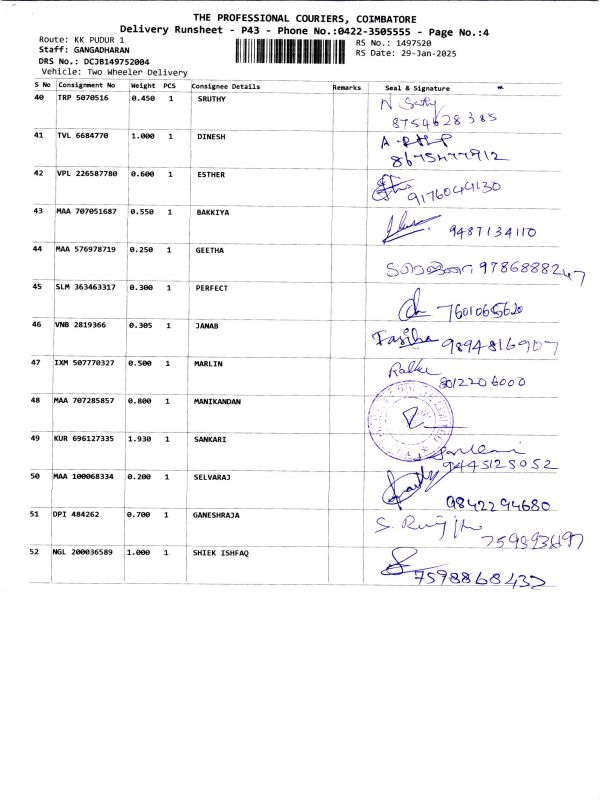 THE PROFESSIONAL COURIERS, COIMBATORE
Delivery Runsheet - P43 - Phone No.:0422-3505555 - Page No.:4
Route: KK PUDUR 1 RS No.: 1497520
Staff: GANGADHARAN RS Date: 29-Jan-2025
DRS No.: DCJB149752004
Vehicle: Two Wheeler Delivery
S No Consignment No Weight PCS Consignee Details Remarks Seal & Signature
40 TRP 5070516 0.450 1 SRUTHY
8754628385
41 TVL 6684770 1.000 1 DINESH
8675477912
42 VPL 226587780 0.600 1 ESTHER
9176044130
43 MAA 707051687 0.550 1 BAKKIYA 9487134110
44 MAA 576978719 0.250 1 GEETHA 9786888247
45 SLM 363463317 0.300 1 PERFECT
7601065620
46 VNB 2819366 0.305 1 JANAB Fasiha 9894816907
47 IXM 507770327 0.500 1 MARLIN
8012206000
48 MAA 707285857 0.800 1 MANIKANDAN
49 KUR 696127335 1.930 1 SANKARI
9445128052
50 MAA 100068334 0.200 1 SELVARAJ
9842294680
51 DPI 484262 0.700 1 GANESHRAJA
52 NGL 200036589 1.000 1 SHIEK ISHFAQ
7598868432